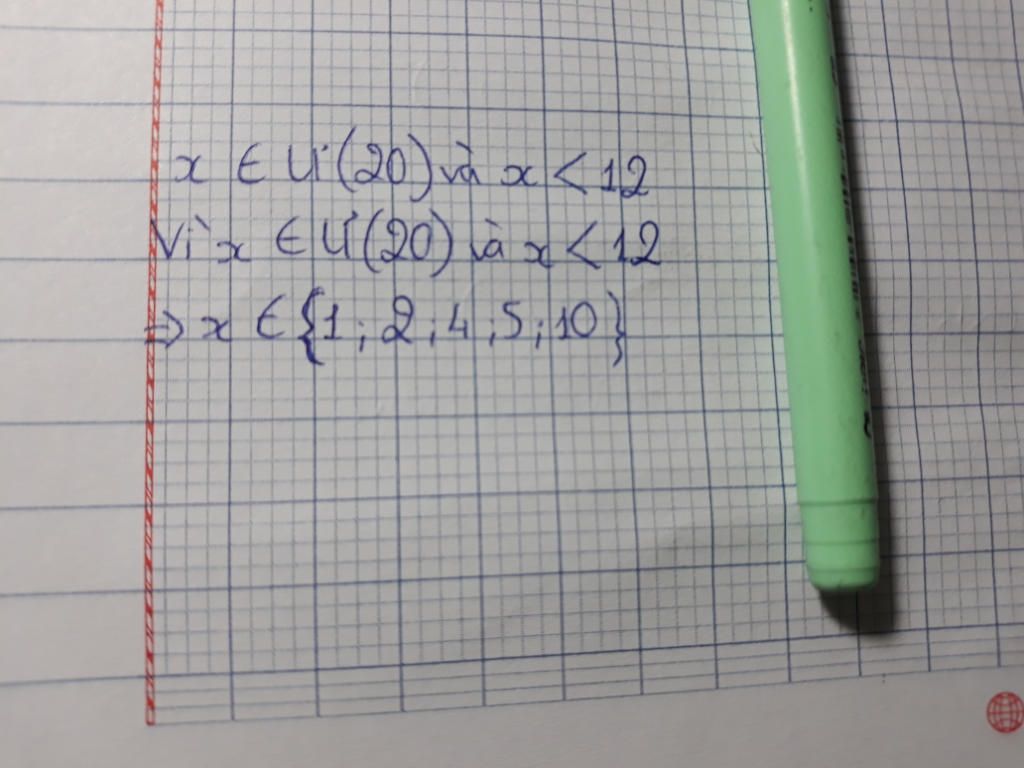 x ∈ Ư(20) và x < 12
Vì x ∈ Ư(20) và x < 12
⇒ x ∈ {1 ; 2 ; 4 ; 5 ; 10}